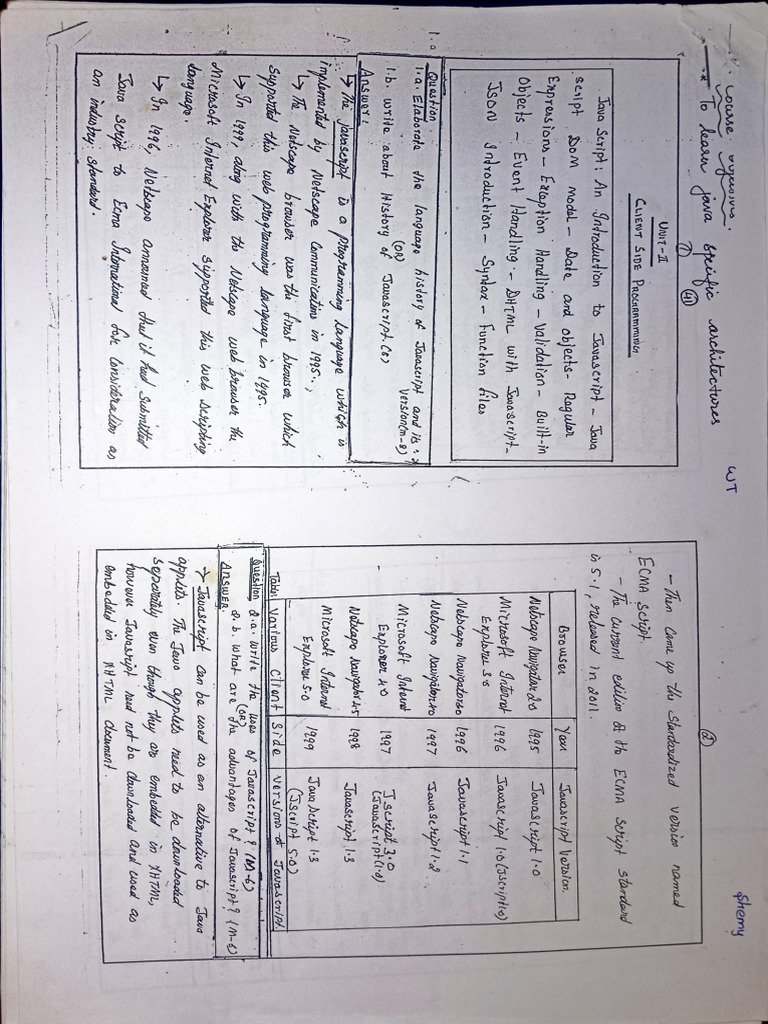 Course
* To learn java specific architectures
WT
Shemy
①
UNIT-II
CLIENT SIDE PROGRAMMING
Java Script: An Introduction to Javascript - Java
script DOM model - Date and objects - Regular
Expressions - Exception Handling - Validation - Built-in
Objects - Event Handling - DHTML with Javascript -
JSON Introduction - Syntax - Function files
Question
1.a. Elaborate the language history of Javascript and its
Version (m-8)
(OR)
1.b. write about History of Javascript. (8)
Answer:
↳ The Javascript is a programming language which is
implemented by Netscape Communications in 1995.
↳ The Netscape browser was the first browser which
supported this web programming language in 1995.
↳ In 1999, along with the Netscape web browser the
Microsoft Internet Explorer supported this web scripting
language.
↳ In 1996, Netscape announced that it had submitted
Java script to Ecma International for consideration as
an industry standard.
②
- Then came up the standardized version named
ECMA script.
- The current edition of the ECMA Script standard
is 5.1, released in 2011.
Browser Year Javascript Version
Netscape Navigator 2.0 1995 Javascript 1.0
Microsoft Internet 1996 Javascript 1.0 (Jscript 1.0)
Explorer 3.0
Netscape Navigator 3.0 1996 Javascript 1.1
Netscape Navigator 4.0 1997 Javascript 1.2
Microsoft Internet 1997 Jscript 3.0
Explorer 4.0 (Javascript 1.0)
Netscape Navigator 4.5 1998 Javascript 1.3
Microsoft Internet 1999 Java Script 1.3
Explorer 5.0 (Jscript 5.0)
Table: Various Client Side versions of Javascript
Question 2.a. Write the uses of Javascript? (M-6)
(OR)
2.b. What are the advantages of Javascript? (M-6)
ANSWER:
→ Javascript can be used as an alternative to Java
applets. The Java applets need to be downloaded
separately even though they are embedded in XHTML,
however Javascript need not be downloaded and used as
embedded in XHTML document.